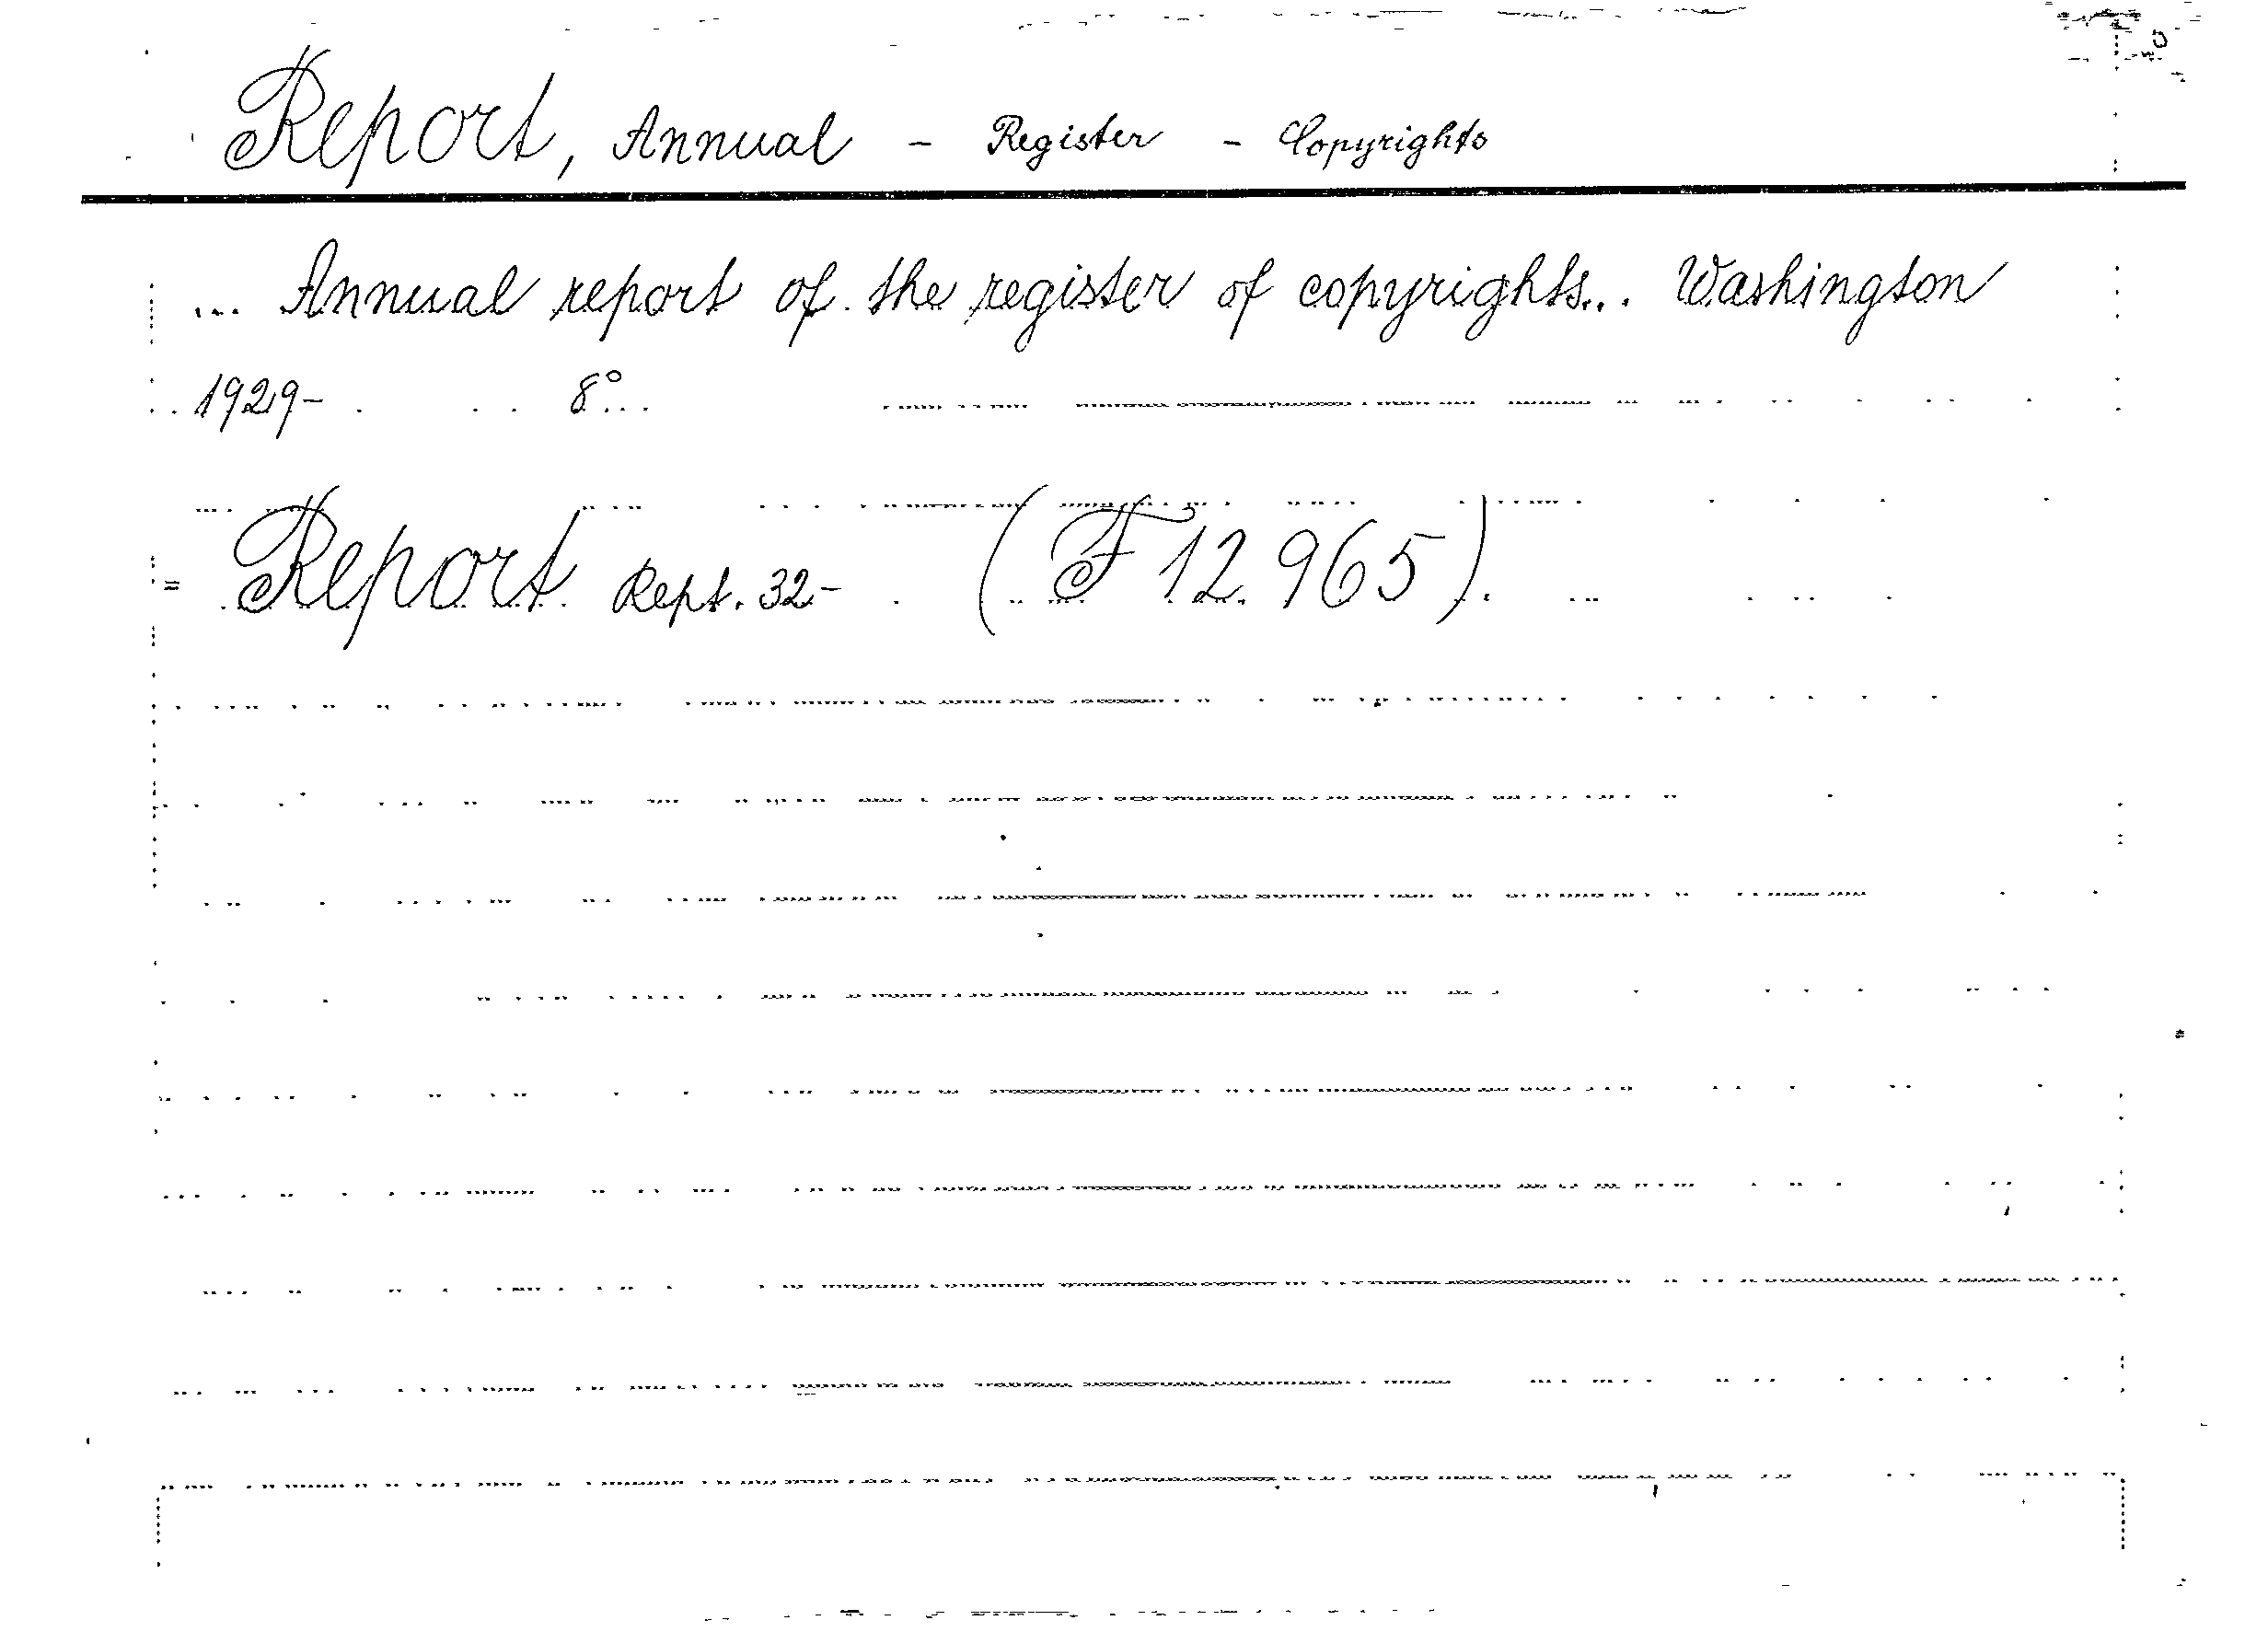 Report, Annual - Register - Copyrights
... Annual report of the register of copyrights... Washington
1929- 8°...
= Report Rept. 32- (F 12.965).